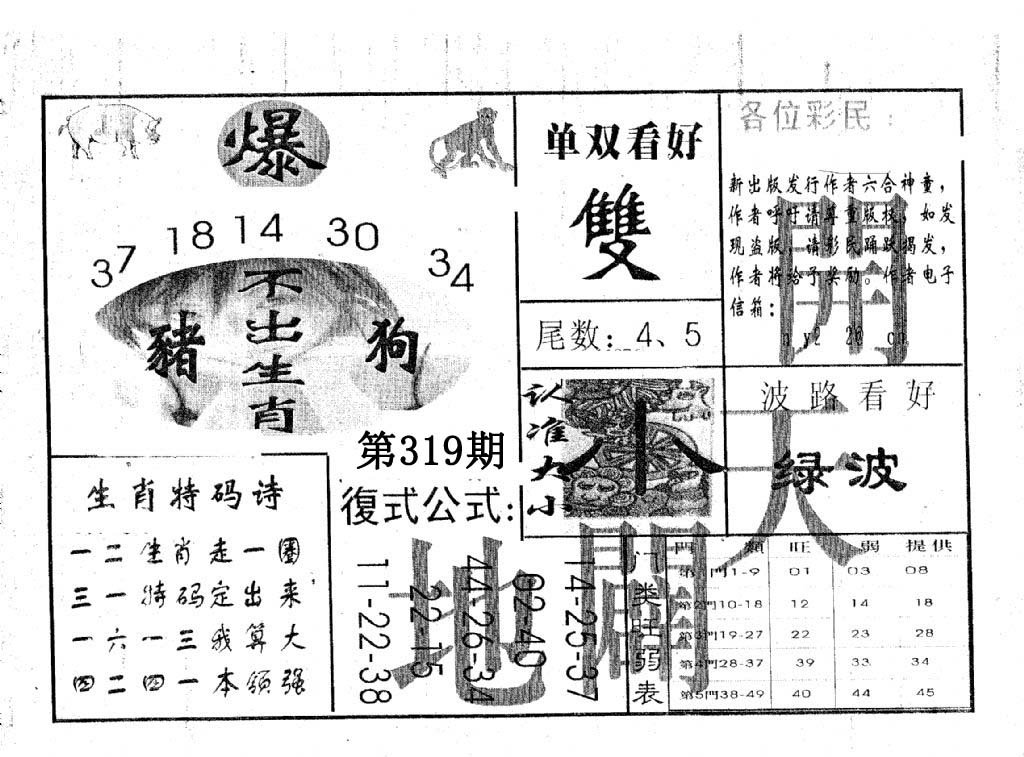 爆
37 18 14 30 34
不出生肖
豬
狗
第319期
復式公式:
单双看好
雙
尾数: 4、5
认准大小
小
各位彩民:
新出版发行作者六合神童,
作者呼吁请尊重版权。如发
现盗版,请彩民踊跃揭发,
作者将给予奖励。作者电子
信箱:
開
波路看好
绿波
天
生肖特码诗
一二生肖走一圈
三一特码定出来
一六一三我算大
四二四一本领强
地
11-22-38
22-15
44-26-34
02-40
14-25-37
開
门类旺弱表
門類 旺 弱 提供
第1門1-9 01 03 08
第2門10-18 12 14 18
第3門19-27 22 23 28
第4門28-37 39 33 34
第5門38-49 40 44 45